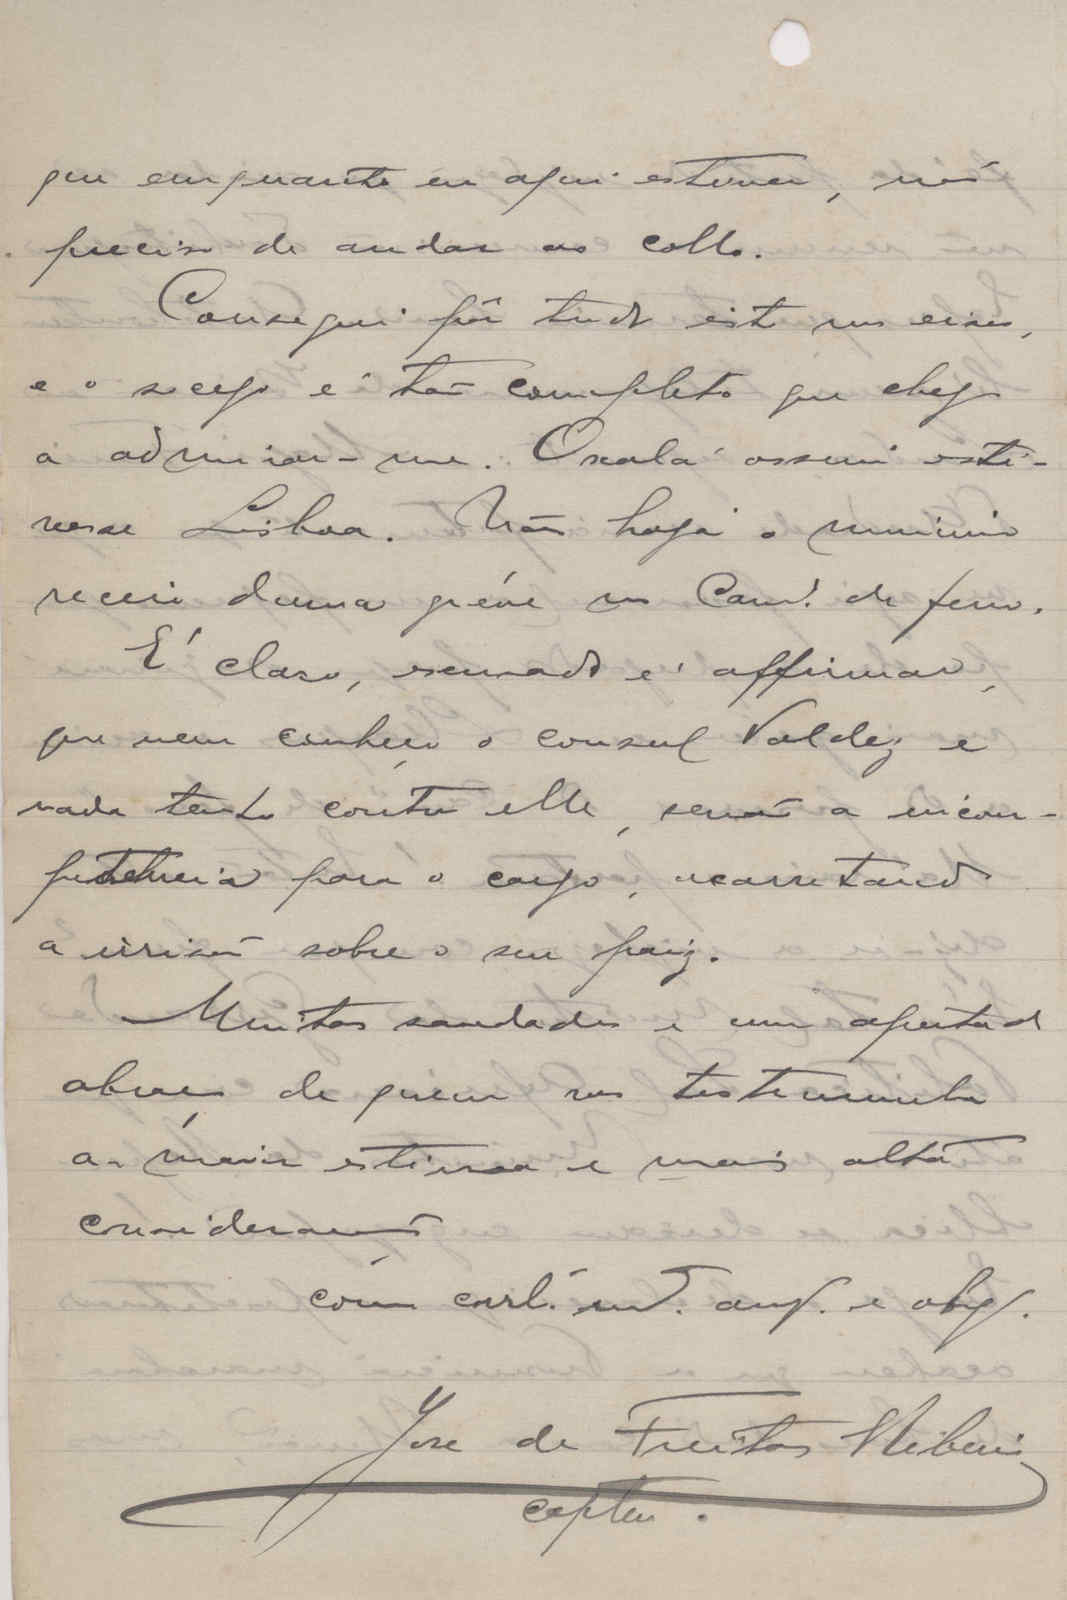 que emquanto eu aqui estiver, não
preciso de andar ao collo.
Consegui pôr tudo isto nos eixos,
e o socego é tão completo que chego
a admirar-me. Oxalá assim esti-
vesse Lisboa. Não haja o minimo
receio duma gréve no Cam.º de ferro.
É claro, escusado é affirmar,
que nem conheço o consul Valdez e
nada tenho contra elle, senão a incom-
petencia para o cargo, acarretando
a irrisão sobre o seu paiz.
Muitas saudades e um apertado
abraço de quem vos testemunha
a maior estima e mais alta
consideração
como corr. am.º e obg.
José de Freitas Ribeiro
capten.